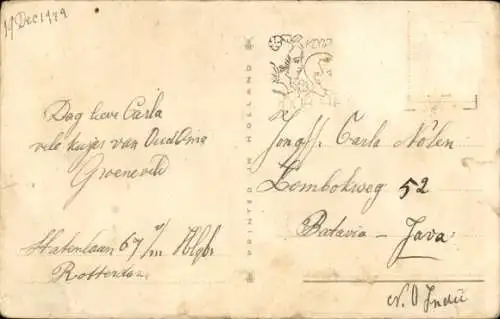 19 Dec 1949
Dag lieve Carla
vele kusjes van Oud Oma
Groeneveld
Statenlaan 67
Rotterdam
PRINTED IN HOLLAND
Jongf. Carla Nolen
Lombokweg 52
Batavia - Java
N. O Indië